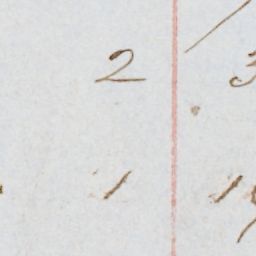 2 3
1 19